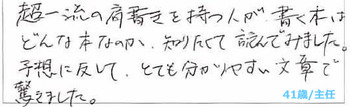 超一流の肩書きを持つ人が、書く本は
どんな本なのか、知りたくて読んでみました。
予想に反して、とても分かりやすい文章で
驚きました。
41歳/主任